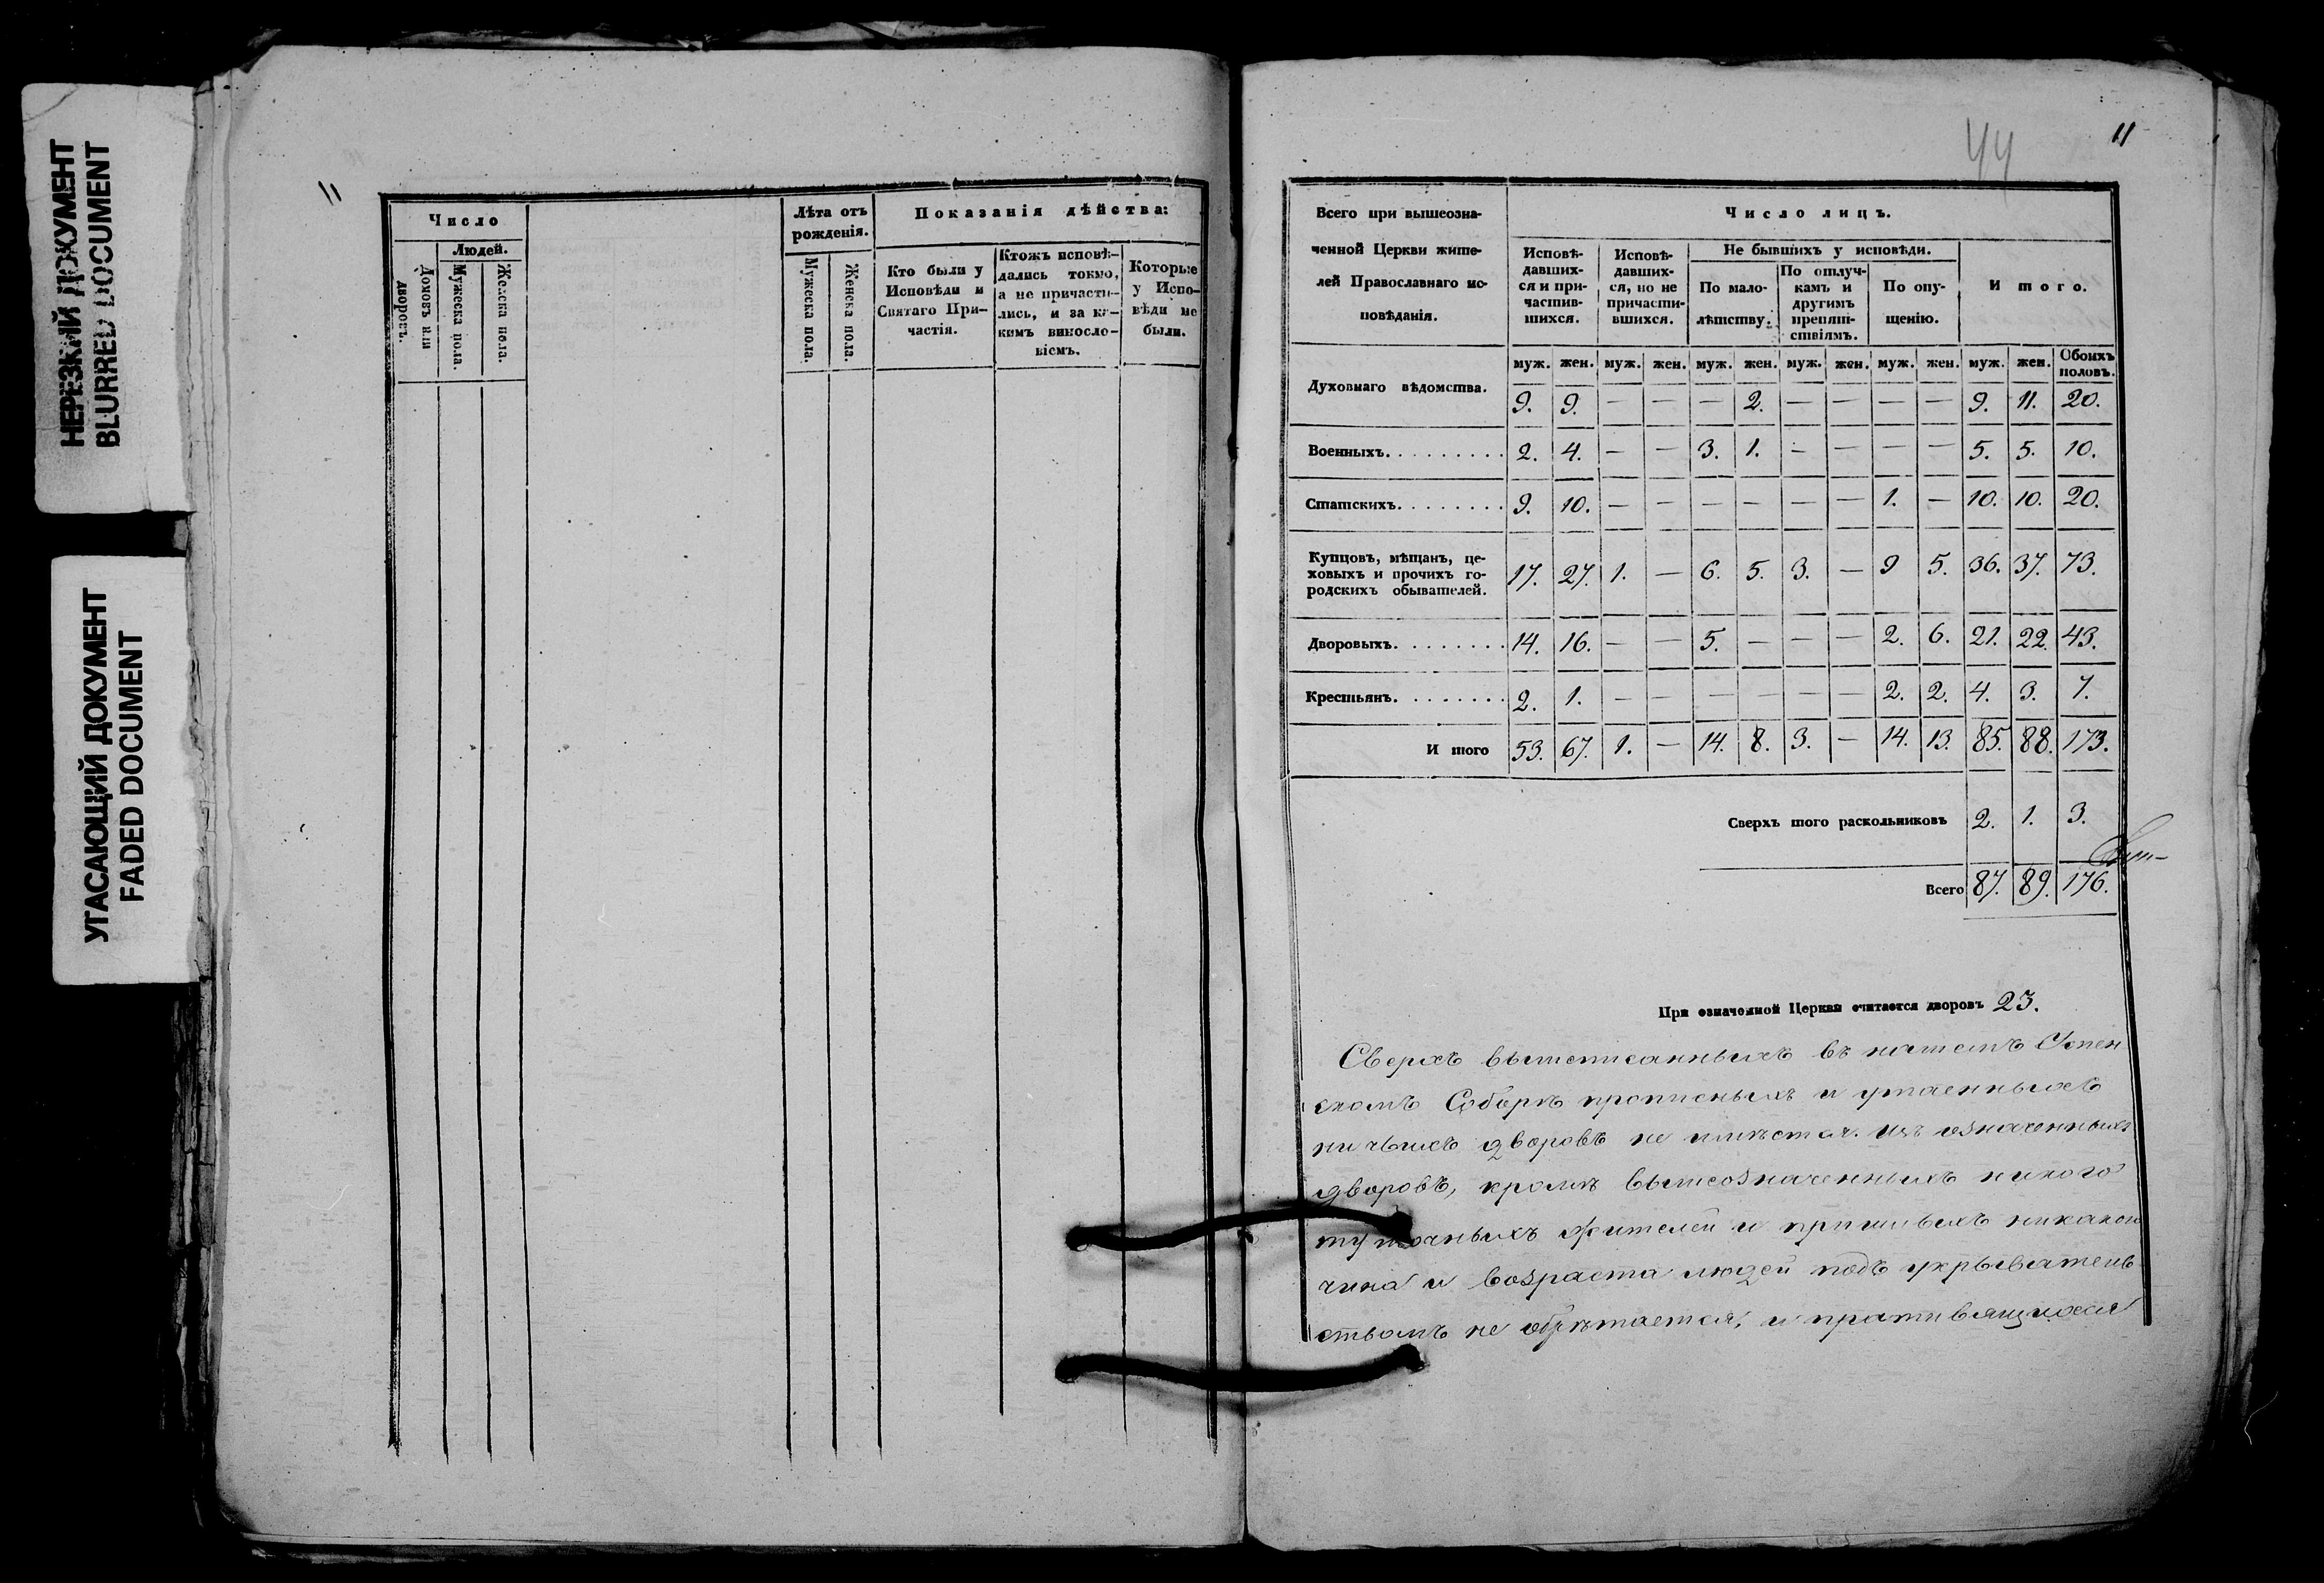 НЕРЕЗКИЙ ДОКУМЕНТ
BLURRED DOCUMENT
УГАСАЮЩИЙ ДОКУМЕНТ
FADED DOCUMENT
11
Число
Домовъ или дворовъ.
Людей.
Мужеска пола.
Женска пола.
Лѣта отъ рожденія.
Мужеска пола.
Женска пола.
Показанія дѣйства:
Кто были у
Исповѣди и
Святаго При-
частія.
Ктожъ исповѣ-
дались токмо,
а не причасти-
лись, и за ка-
кимъ винослo-
віемъ.
Которые
у Испо-
вѣди не
были.
44
11
Всего при вышеозна-
ченной Церкви жите-
лей Православнаго ис-
повѣданія.
Число лицъ.
Исповѣ-
давших-
ся и при-
частив-
шихся.
Исповѣ-
давших-
ся, но не
причасти-
вшихся.
Не бывшихъ у исповѣди.
По мало-
лѣтству.
По отлуч-
камъ и
другимъ
препят-
ствіямъ.
По опу-
щенію.
Итого.
муж. жен. муж. жен. муж. жен. муж. жен. муж. жен. муж. жен. Обоихъ половъ.
Духовнаго вѣдомства. 9. 9. — — — 2. — — — — 9. 11. 20.
Военныхъ. 2. 4. — — 3. 1. — — — — 5. 5. 10.
Статскихъ. 9. 10. — — — — — — 1. — 10. 10. 20.
Купцовъ, мѣщанъ, це-
ховыхъ и прочихъ го-
родскихъ обывателей. 17. 27. 1. — 6. 5. 3. — 9 5. 36. 37. 73.
Дворовыхъ. 14. 16. — — 5. — — — 2. 6. 21. 22. 43.
Крестьянъ. 2. 1. — — — — — — 2. 2. 4. 3. 7.
Итого 53. 67. 1. — 14. 8. 3. — 14. 13. 85. 88. 173.
Сверхъ того раскольниковъ 2. 1. 3.
Всего 87. 89. 176.
При означенной Церкви считается дворовъ 23.
Сверхъ вышеписанныхъ въ нашемъ Успен
скомъ Соборѣ прописныхъ и утаенныхъ
ничьихъ дворовъ не имѣется. Изъ означенныхъ
дворовъ, кромѣ вышеозначенныхъ никого
жителей и пришлыхъ никакого
чина и возраста людей подъ укрыватель
ствомъ не обрѣтается, и противящихся